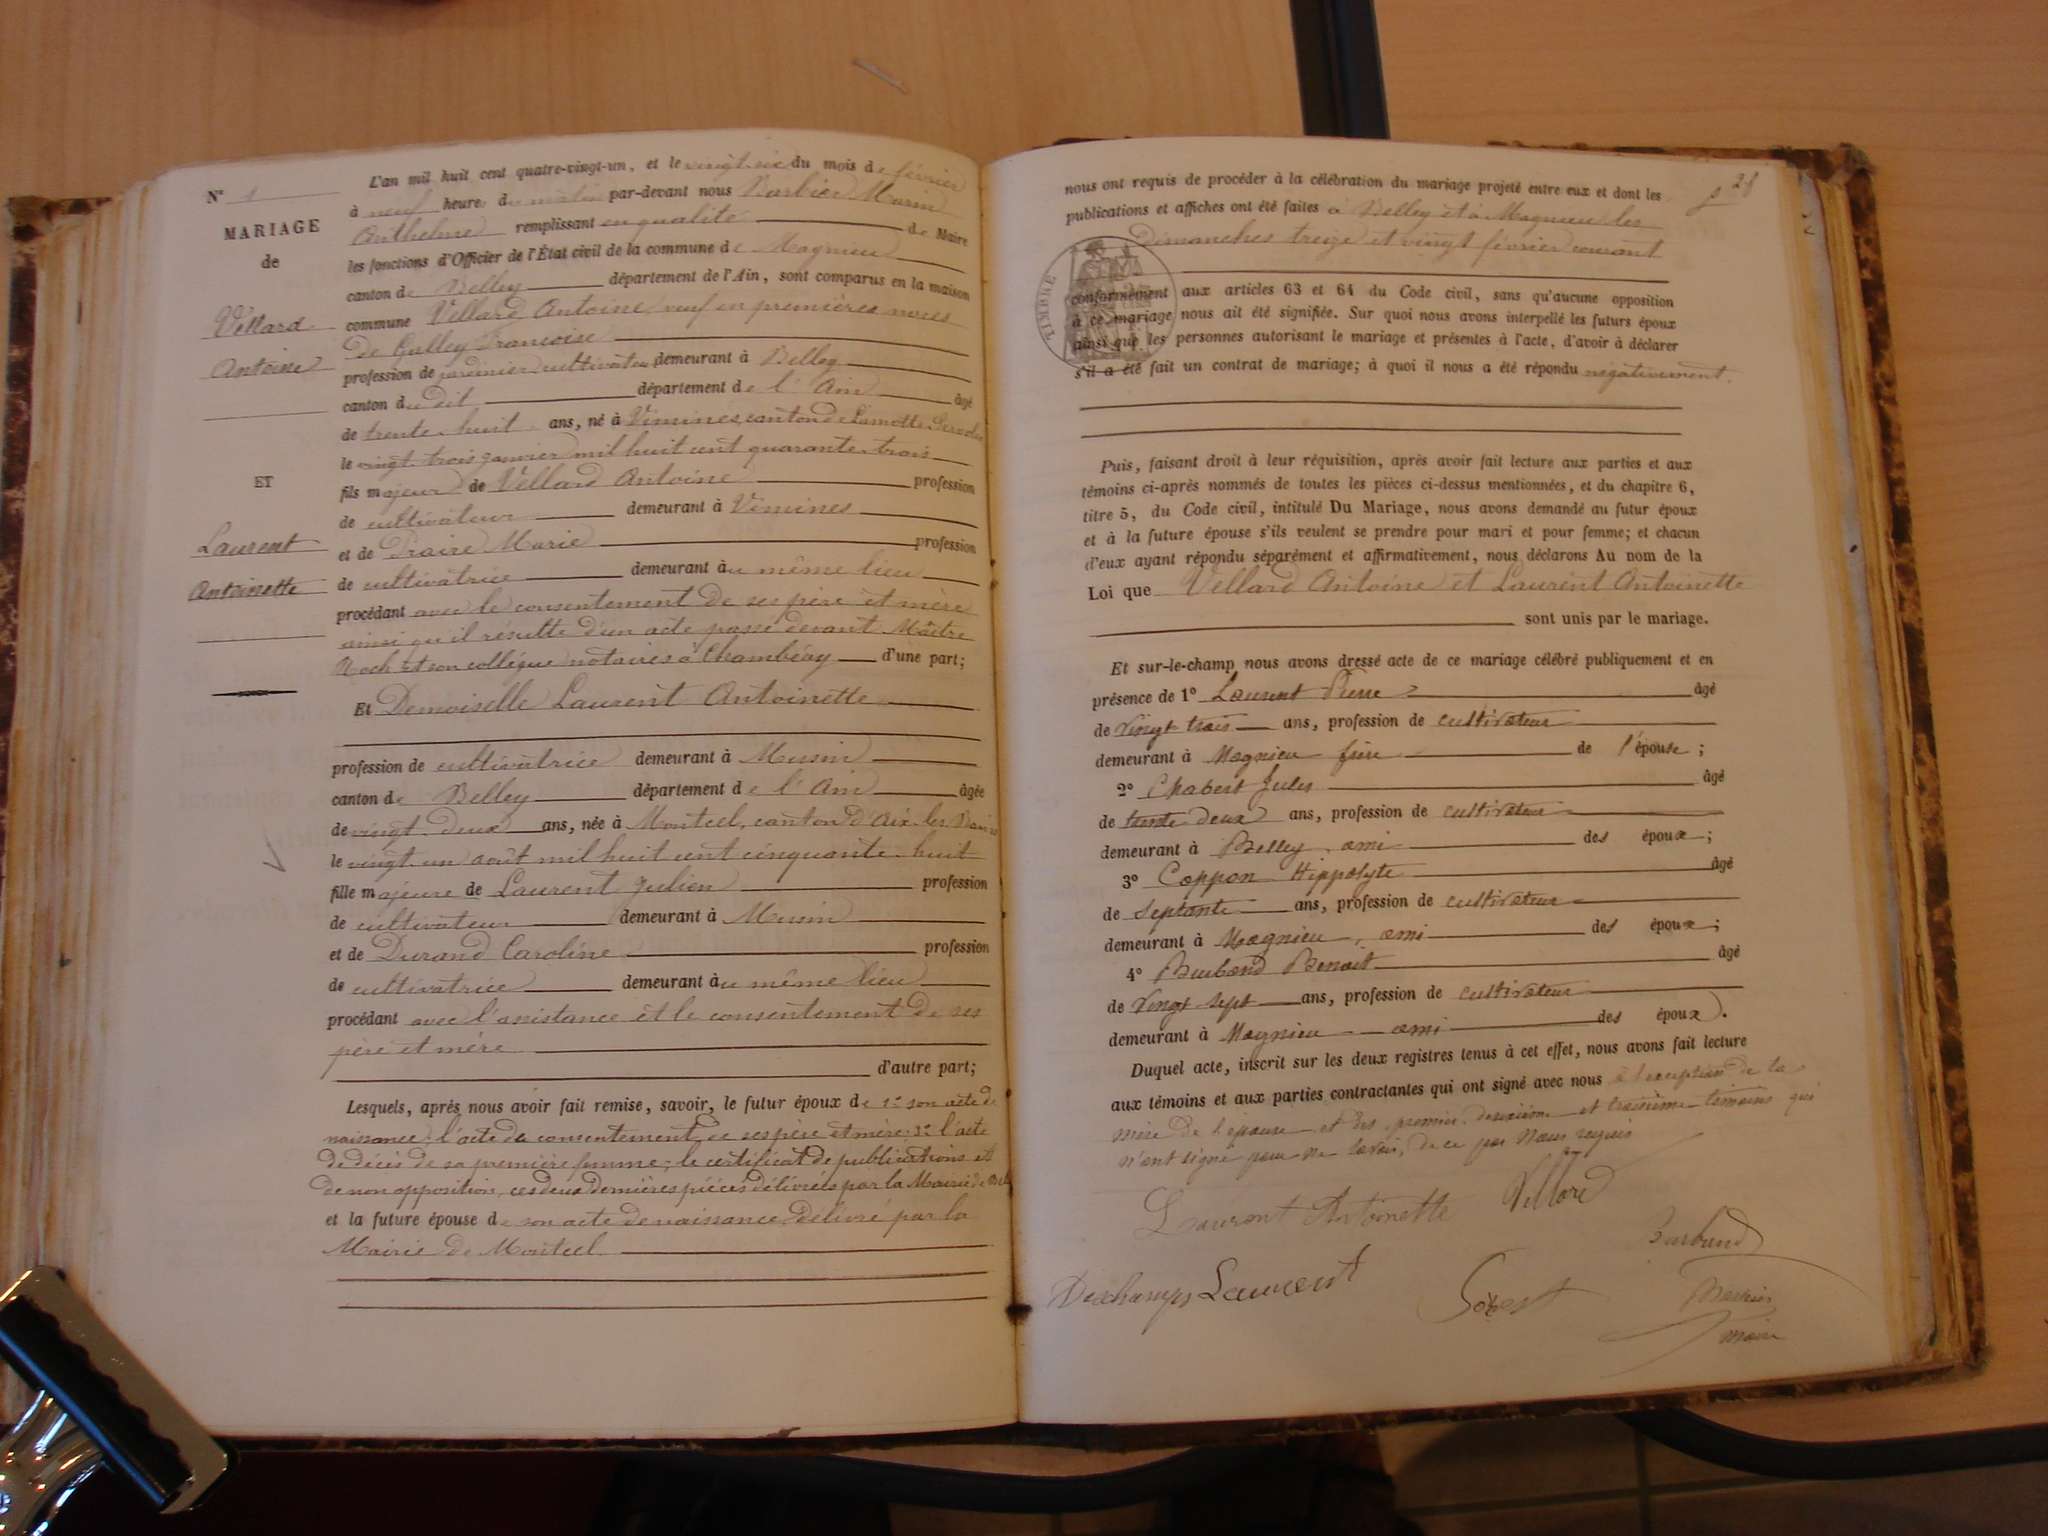 N° 1
MARIAGE
de
Véllard
Antoine
ET
Laurent
Antoinette
L'an mil huit cent quatre-vingt-un, et le vingt-six du mois de février
à neuf heures du matin par-devant nous Barbier Marin
Anthelme remplissant en qualité de Maire
les fonctions d'Officier de l'État civil de la commune de Magnieu
canton de Belley département de l'Ain, sont comparus en la maison
commune Véllard Antoine, veuf en premières noces
De Gulley Françoise
profession de cultivateur demeurant à Belley
canton du dit département de l'Ain âgé
de trente-huit ans, né à Vimines, canton de Lamotte Servolex
le vingt-trois janvier mil huit cent quarante-trois
fils majeur de Véllard Antoine profession
de cultivateur demeurant à Vimines
et de Praire Marie profession
de cultivâtrice demeurant au même lieu
procédant avec le consentement de ses père et mère
ainsi qu'il résulte d'un acte passé devant Maître
Roch et son collègue notaires à Chambéry d'une part;
Et Demoiselle Laurent Antoinette
profession de cultivâtrice demeurant à Musin
canton de Belley département de l'Ain âgée
de vingt-deux ans, née à Montcel, canton d'Aix-les-Bains
le vingt-un août mil huit cent cinquante-huit
fille majeure de Laurent Julien profession
de cultivateur demeurant à Musin
et de Durand Caroline profession
de cultivâtrice demeurant au même lieu
procédant avec l'assistance et le consentement de ses
père et mère
d'autre part;
Lesquels, après nous avoir fait remise, savoir, le futur époux de 1° son acte de
naissance; l'acte de consentement de ses père et mère; 3° l'acte
de décès de sa première femme; le certificat de publications et
de non opposition, ces deux dernières pièces délivrées par la Mairie de Bel
et la future épouse de son acte de naissance délivré par la
Mairie de Montcel
28
nous ont requis de procéder à la célébration du mariage projeté entre eux et dont les
publications et affiches ont été faites à Belley et à Magnieu les
Dimanches treize et vingt février courant
TIMBRE
conformément aux articles 63 et 64 du Code civil, sans qu'aucune opposition
à ce mariage nous ait été signifiée. Sur quoi nous avons interpellé les futurs époux
ainsi que les personnes autorisant le mariage et présentes à l'acte, d'avoir à déclarer
s'il a été fait un contrat de mariage; à quoi il nous a été répondu négativement.
Puis, faisant droit à leur réquisition, après avoir fait lecture aux parties et aux
témoins ci-après nommés de toutes les pièces ci-dessus mentionnées, et du chapitre 6,
titre 5, du Code civil, intitulé Du Mariage, nous avons demandé au futur époux
et à la future épouse s'ils veulent se prendre pour mari et pour femme; et chacun
d'eux ayant répondu séparément et affirmativement, nous déclarons Au nom de la
Loi que Véllard Antoine et Laurent Antoinette
sont unis par le mariage.
Et sur-le-champ nous avons dressé acte de ce mariage célébré publiquement et en
présence de 1° Laurent Pierre âgé
de vingt trois ans, profession de cultivateur
demeurant à Magnieu frère de l'épouse;
2° Chabert Jules âgé
de trente deux ans, profession de cultivateur
demeurant à Belley ami des époux;
3° Coppon Hippolyte âgé
de Septante ans, profession de cultivateur
demeurant à Magnieu, ami des époux;
4° Burband Benoit âgé
de vingt sept ans, profession de cultivateur
demeurant à Magnieu ami des époux.
Duquel acte, inscrit sur les deux registres tenus à cet effet, nous avons fait lecture
aux témoins et aux parties contractantes qui ont signé avec nous à l'exception de la
mère de l'épouse et des premier deuxième et troisième témoins qui
n'ont signé pour ne savoir, de ce par nous requis
Laurent Antoinette Véllard
Burband
Deschamps Laurent
Barbier
maire